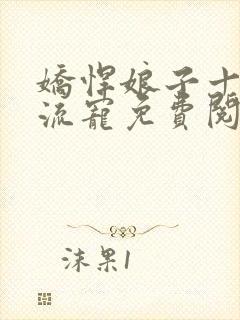 嬌悍娘子十
流寵免費閱
沫果1